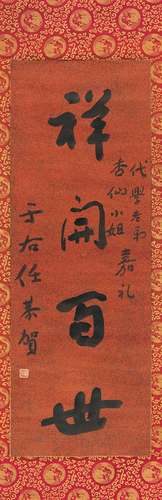 代學老弟
杏仙小姐
嘉礼
祥開百世
于右任恭賀